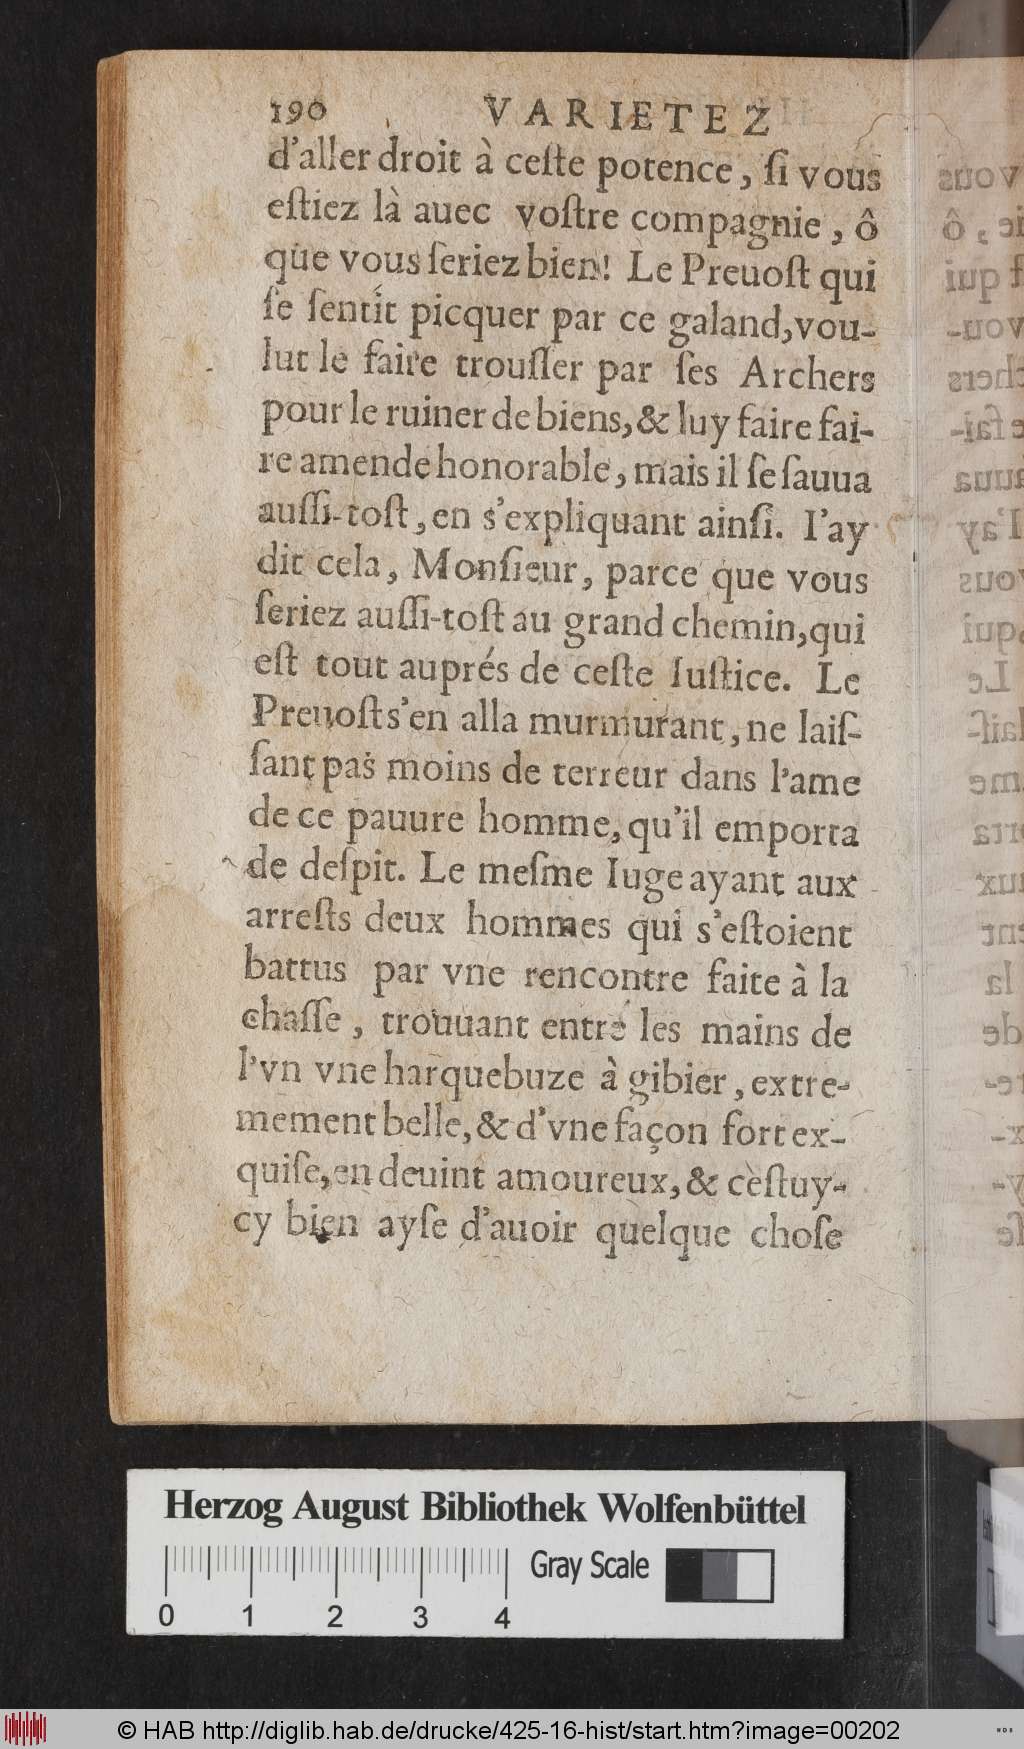 190 VARIETEZ
d'aller droit à ceſte potence, ſi vous
eſtiez là auec voſtre compagnie, ô
que vous ſeriez bien! Le Preuoſt qui
ſe ſentit picquer par ce galand, vou-
lut le faire trouſſer par ſes Archers
pour le ruiner de biens, & luy faire fai-
re amende honorable, mais il ſe ſauua
auſſi-toſt, en s'expliquant ainſi. I'ay
dit cela, Monſieur, parce que vous
ſeriez auſſi-toſt au grand chemin, qui
eſt tout auprés de ceſte Iuſtice. Le
Preuoſt s'en alla murmurant, ne laiſ-
ſant pas moins de terreur dans l'ame
de ce pauure homme, qu'il emporta
de deſpit. Le meſme Iuge ayant aux
arreſts deux hommes qui s'eſtoient
battus par vne rencontre faite à la
chaſſe, trouuant entre les mains de
l'vn vne harquebuze à gibier, extre-
mement belle, & d'vne façon fort ex-
quiſe, en deuint amoureux, & ceſtuy-
cy bien ayſe d'auoir quelque choſe
Herzog August Bibliothek Wolfenbüttel
Gray Scale
0 1 2 3 4
© HAB http://diglib.hab.de/drucke/425-16-hist/start.htm?image=00202